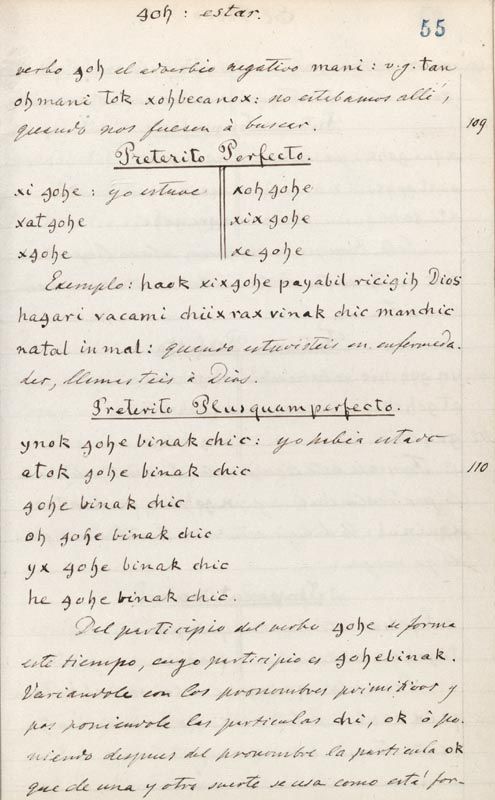 goh : estar.
55
verbo goh el adverbio negativo mani : v.g. tan
oh mani tok xohbecanox : no estabamos allé,
quando nos fueson à buscar.
109
Preterito Perfecto.
xi gohe : yo estuve xoh gohe
xat gohe xix gohe
xgohe xe gohe
Exemplo : haok xixgohe payabil ricigih Dios
hagari vacami chiix rax vinak chic manchic
natal inmal : quando estuvisteis en enfermeda-
des, llamasteis à Dios.
Preterito Plusquamperfecto.
ynok gohe binak chic : yo habia estado
atok gohe binak chic
110
gohe binak chic
oh gohe binak chic
yx gohe binak chic
he gohe binak chic.
Del participio del verbo gohe se forma
este tiempo, cuyo participio es gohebinak.
Variandole con los pronombres primitivos y
pos poniendole las particulas chi, ok ò po-
niendo despues del pronombre la particula ok
que de una y otra suerte se usa como está for-